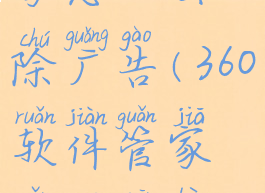 chú guǎng gào
除广告(360
ruǎn jiàn guǎn jiā
软件管家